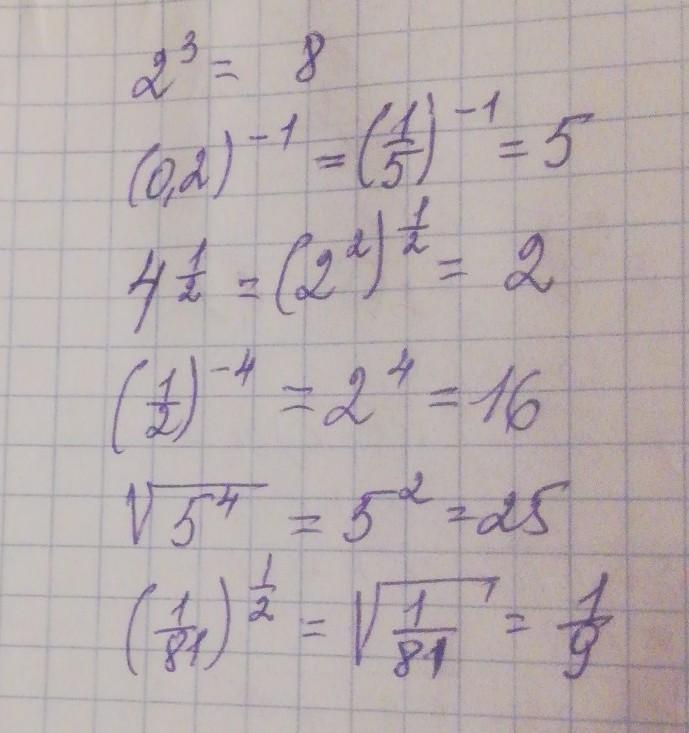 2³ = 8
(0,2)⁻¹ = (1/5)⁻¹ = 5
4^(1/2) = (2²)^(1/2) = 2
(1/2)⁻⁴ = 2⁴ = 16
√5⁴ = 5² = 25
(1/81)^(1/2) = √(1/81) = 1/9